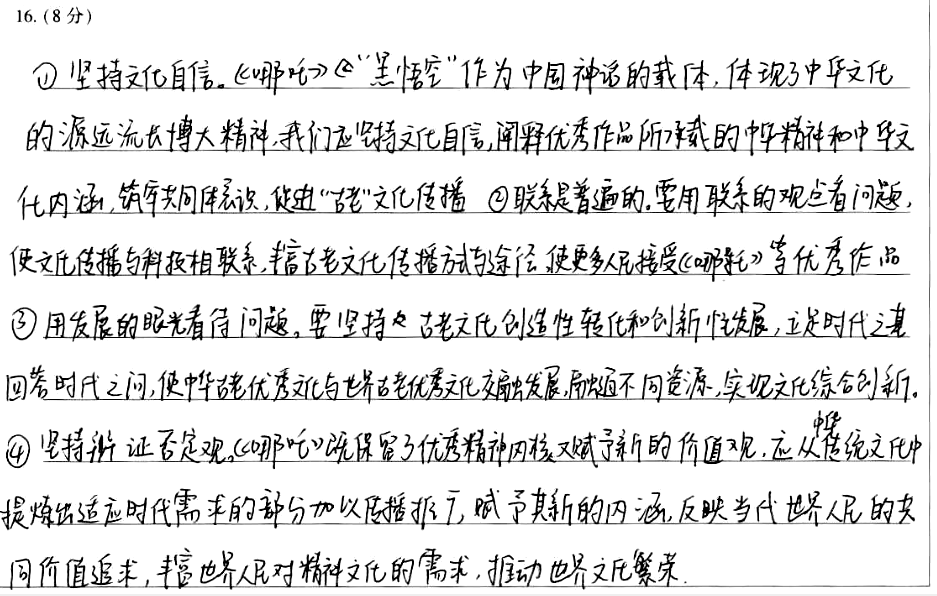 16. (8 分)
① 坚持文化自信。《哪吒》《"黑悟空"作为中国神话的载体,体现了中华文化
的源远流长博大精神,我们应坚持文化自信,阐释优秀作品所承载的中华精神和中华文
化内涵,筑牢共同体意识,促进"古老"文化传播 ②联系是普遍的。要用联系的观点看问题,
使文化传播与科技相联系,丰富古老文化传播方式与途径,使更多人民接受《哪吒》等优秀作品
③ 用发展的眼光看待问题。要坚持 古老文化创造性转化和创新性发展,立足时代之基
回答时代之问,使中华古老优秀文化与世界古老优秀文化交融发展,融通不同资源,实现文化综合创新。
④ 坚持辩证否定观。《哪吒》既保留了优秀精神内核又赋予新的价值观,应从中华传统文化中
提炼出适应时代需求的部分加以传播推广,赋予其新的内涵,反映当代世界人民的共
同价值追求,丰富世界人民对精神文化的需求,推动世界文化繁荣.